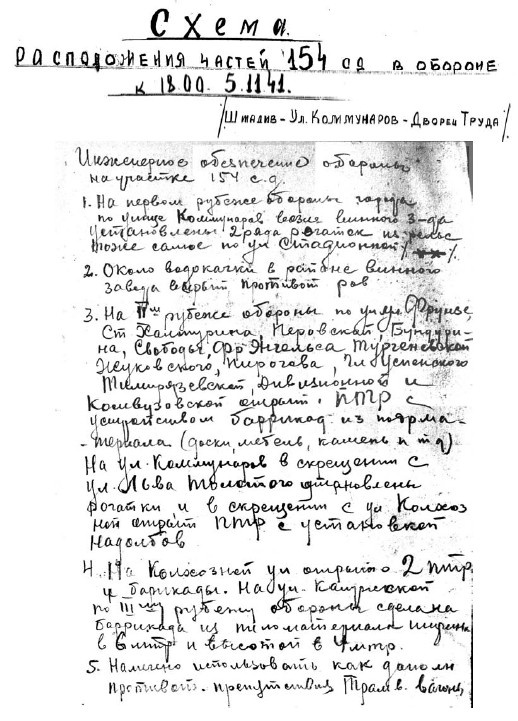 Схема
расположения частей 154 сд в обороне
к 18.00 5.11.41.
/Штадив - Ул. Коммунаров - Дворец Труда/
Инженерное обеспечение обороны
на участке 154 с.д.
1. На первом рубеже обороны города
по улице Коммунаров возле винного з-да
установлены 2 ряда рогаток из рельс
тоже самое по ул Стадионной
2. Около водокачки в районе винного
завода вскрыт противот ров
3. На II ом рубеже обороны по ул ул. Фрунзе,
Ст Халтурина, Перовской, Бундури-
на, Свободы, Фр Энгельса Тургеневской
Жуковского, Пирогова, Гл Успенского
Тимирязевской, Дивизионной и
Комвузовской открыт. ПТР с
устройством баррикад из подрма-
териала (доски, мебель, камень и т д)
На ул. Коммунаров в скрещении с
ул. Льва Толстого установлены
рогатки и в скрещении с ул Колхоз
ной открыт ПТР с установкой
надолбов
4. На Колхозной ул открыто 2 птр
и барикады. На ул. Калужской
по III му рубежу обороны сделана
баррикада из пиломатериала ширина
в 6 мтр и высотой в 4 мтр.
5. Намечено использовать как дополн
противот. препятствия Трамв. вагоны